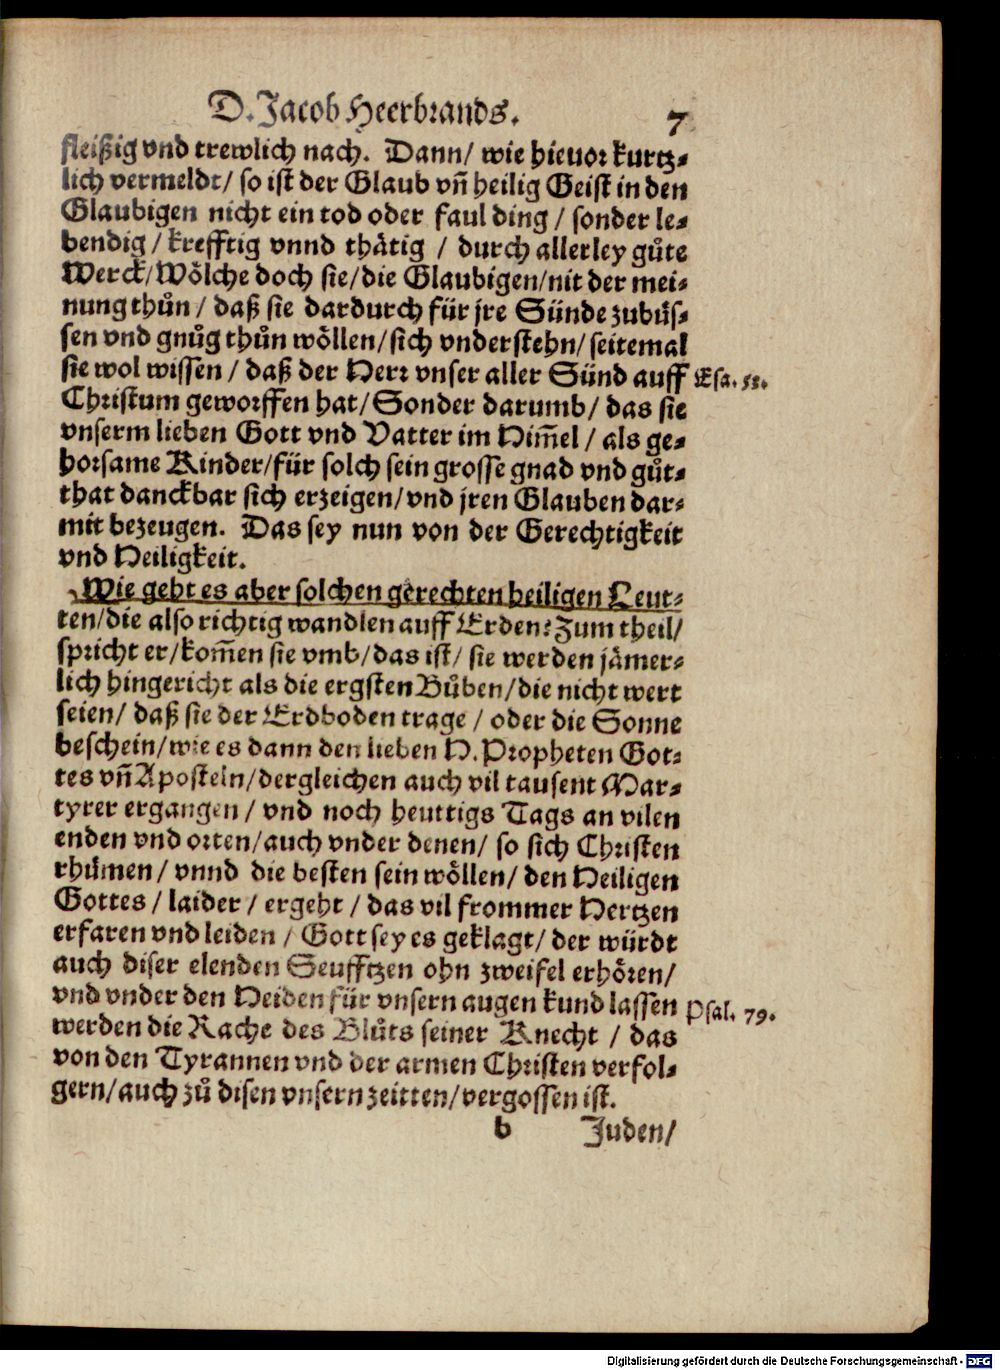 D. Jacob Heerbrands. 7
fleißig vnd trewlich nach. Dann/ wie hieuor kurtz-
lich vermeldt/ so ist der Glaub vñ heilig Geist in den
Glaubigen nicht ein tod oder faul ding / sonder le-
bendig / krefftig vnnd thätig / durch allerley gůte
Werck/ Wölche doch sie/ die Glaubigen/ nit der mei-
nung thůn / daß sie dardurch für jre Sünde zubůs-
sen vnd gnůg thůn wöllen/ sich vnderstehn/ seitemal
sie wol wissen / daß der Herr vnser aller Sünd auff Esa. 53.
Christum geworffen hat/ Sonder darumb/ das sie
vnserm lieben Gott vnd Vatter im Him̃el / als ge-
horsame Kinder/ für solch sein grosse gnad vnd gůt-
that danckbar sich erzeigen/ vnd jren Glauben dar-
mit bezeugen. Das sey nun von der Gerechtigkeit
vnd Heiligkeit.
Wie geht es aber solchen gerechten heiligen Leut-
ten/ die also richtig wandlen auff Erden? Zum theil/
spricht er/ kom̃en sie vmb/ das ist/ sie werden jämer-
lich hingericht als die ergsten Bůben/ die nicht wert
seien/ daß sie der Erdboden trage / oder die Sonne
beschein/ wie es dann den lieben H. Propheten Got-
tes vñ Aposteln/ dergleichen auch vil tausent Mar-
tyrer ergangen / vnd noch heuttigs Tags an vilen
enden vnd orten/ auch vnder denen/ so sich Christen
rhůmen / vnnd die besten sein wöllen/ den Heiligen
Gottes / laider / ergeht / das vil frommer Hertzen
erfaren vnd leiden / Gott sey es geklagt/ der würdt
auch diser elenden Seufftzen ohn zweifel erhören/
vnd vnder den Heiden für vnsern augen kund lassen Psal. 79.
werden die Rache des Blůts seiner Knecht / das
von den Tyrannen vnd der armen Christen verfol-
gern/ auch zů disen vnsern zeitten/ vergossen ist.
b Juden/
Digitalisierung gefördert durch die Deutsche Forschungsgemeinschaft - DFG